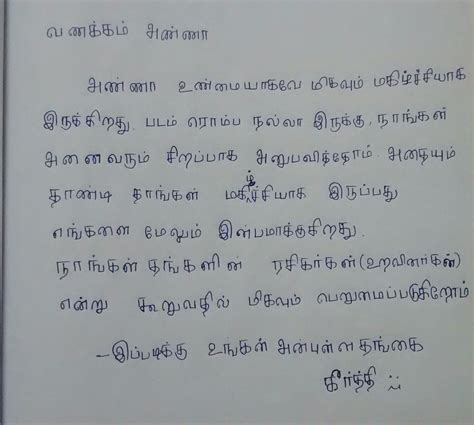 வணக்கம் அண்ணா
அண்ணா உண்மையாகவே மிகவும் மகிழ்ச்சியாக
இருக்கிறது. படம் ரொம்ப நல்லா இருக்கு, நாங்கள்
அனைவரும் சிறப்பாக அனுபவித்தோம். அதையும்
தாண்டி தாங்கள் மகிழ்ச்சியாக இருப்பது
எங்களை மேலும் இன்பமாக்குகிறது.
நாங்கள் தங்களின் ரசிகர்கள் (உறவினர்கள்)
என்று கூறுவதில் மிகவும் பெறுமைப்படுகிறோம்
-இப்படிக்கு உங்கள் அன்புள்ள தங்கை
கீர்த்தி :)